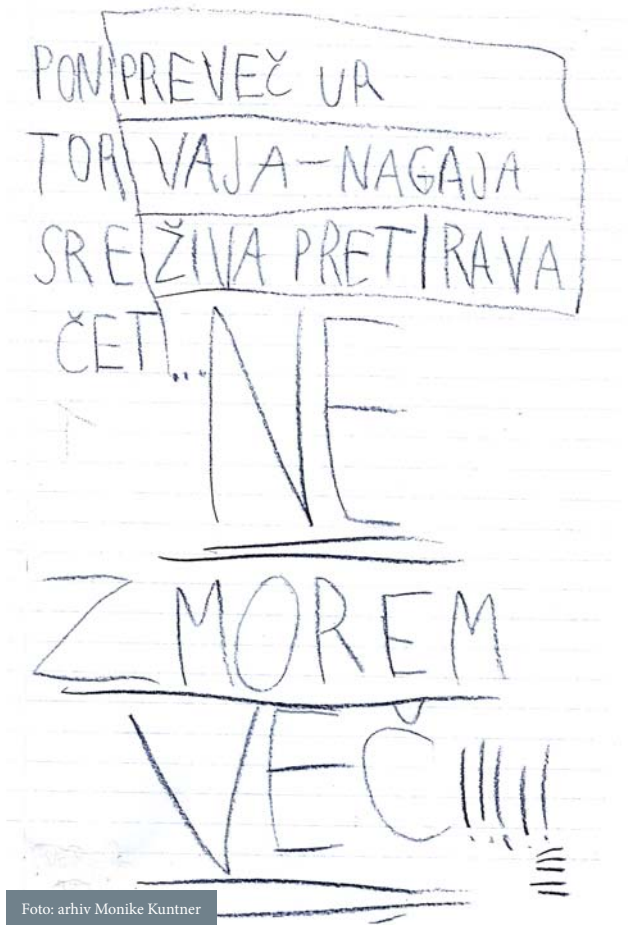 PON PREVEČ UR
TOR VAJA-NAGAJA
SRE ŽIVA PRETIRAVA
ČET...
NE
ZMOREM
VEČ!!!!!
Foto: arhiv Monike Kuntner